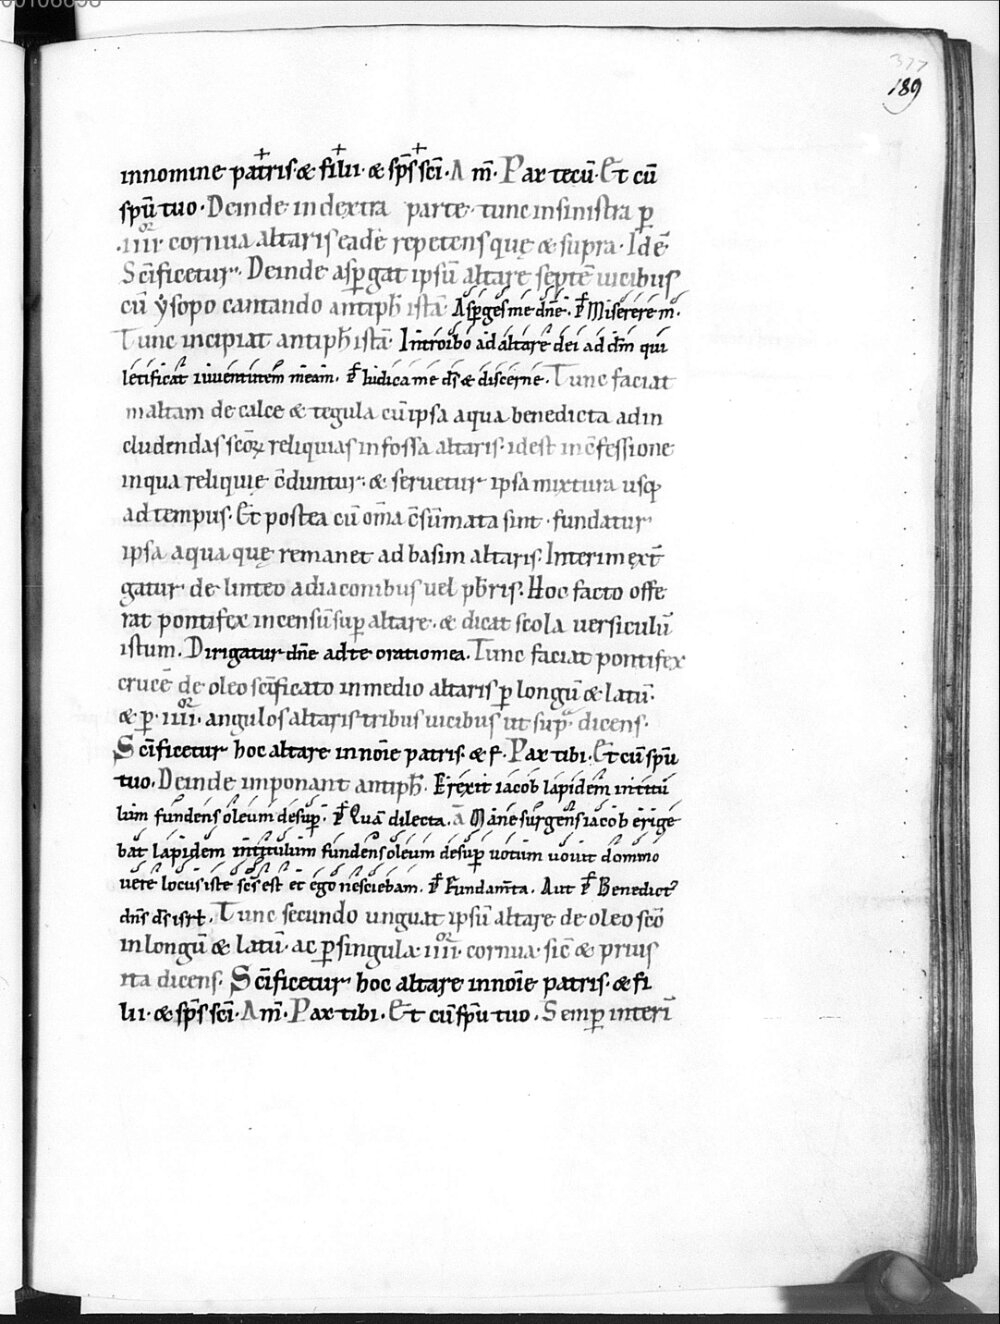 00106698
377
189
innomine patris· & filii· & sp̄s sc̄i· A m̄· Pax tecū· Et cū
spū tuo· Deinde in dextra parte· tunc insinistra p̱
·iiiior· cornua altaris eadē repetens quę & supra· Idē
Sc̄ificetur· Deinde asp̱gat ipsū altare septē uicibus
cū ẏsopo cantando antiph̄ istā· Asp̱ges me dn̄e· P̄s Miserere m̄·
Tunc incipiat antiph̄ istā· Introibo ad altare dei ad dm̄ qui
letificat iuuentutem meam· P̄s Iudica me ds̄ & discerne· Tunc faciat
maltam de calce & tegula cū ipsa aqua benedicta adin
cludendas scōꝝ reliquias in fossa altaris· idest in c̄fessione
in qua reliquię c̄duntur· & seruetur ipsa mixtura usq̨
ad tempus· Et postea cū om̄a c̄sūmata sint· fundatur
ipsa aqua quę remanet ad basim altaris· Interim ext̄
gatur· de linteo adiaconibus uel pb̄ris· Hoc facto offe
rat pontifex incensū sup̱ altare· & dicat scola uersiculū
istum· Dirigatur dn̄e ad te oratio mea· Tunc faciat pontifex
crucē de oleo sc̄ificato in medio altaris p̱ longū & latū·
& p̱ ·iiiior· angulos altaris tribus uicibus ut sup̱a dicens·
Sc̄ificetur hoc altare in noīe patris· & f· Pax tibi· Et cū spū
tuo· Deinde imponant antiph̄· Erexit iacob lapidem in titu
lum fundens oleum desup̱· P̄s Quā dilecta· ā Mane surgens iacob erige
bat lapidem in titulum fundens oleum desup̱ uotum uouit domino
uere locus iste sc̄s est et ego nesciebam· P̄s Fundam̄ta· Aut P̄s Benedict'
dn̄s ds̄ isrl̄· Tunc secundo unguat ipsū altare de oleo scō
in longū & latū· ac p̱ singula ·iiiior· cornua· sic̄ & prius
ita dicens· Sc̄ificetur hoc altare in noīe patris· & fi
lii· & sp̄s sc̄i· A m̄· Pax tibi· Et cū spū tuo· Semp̱ interī